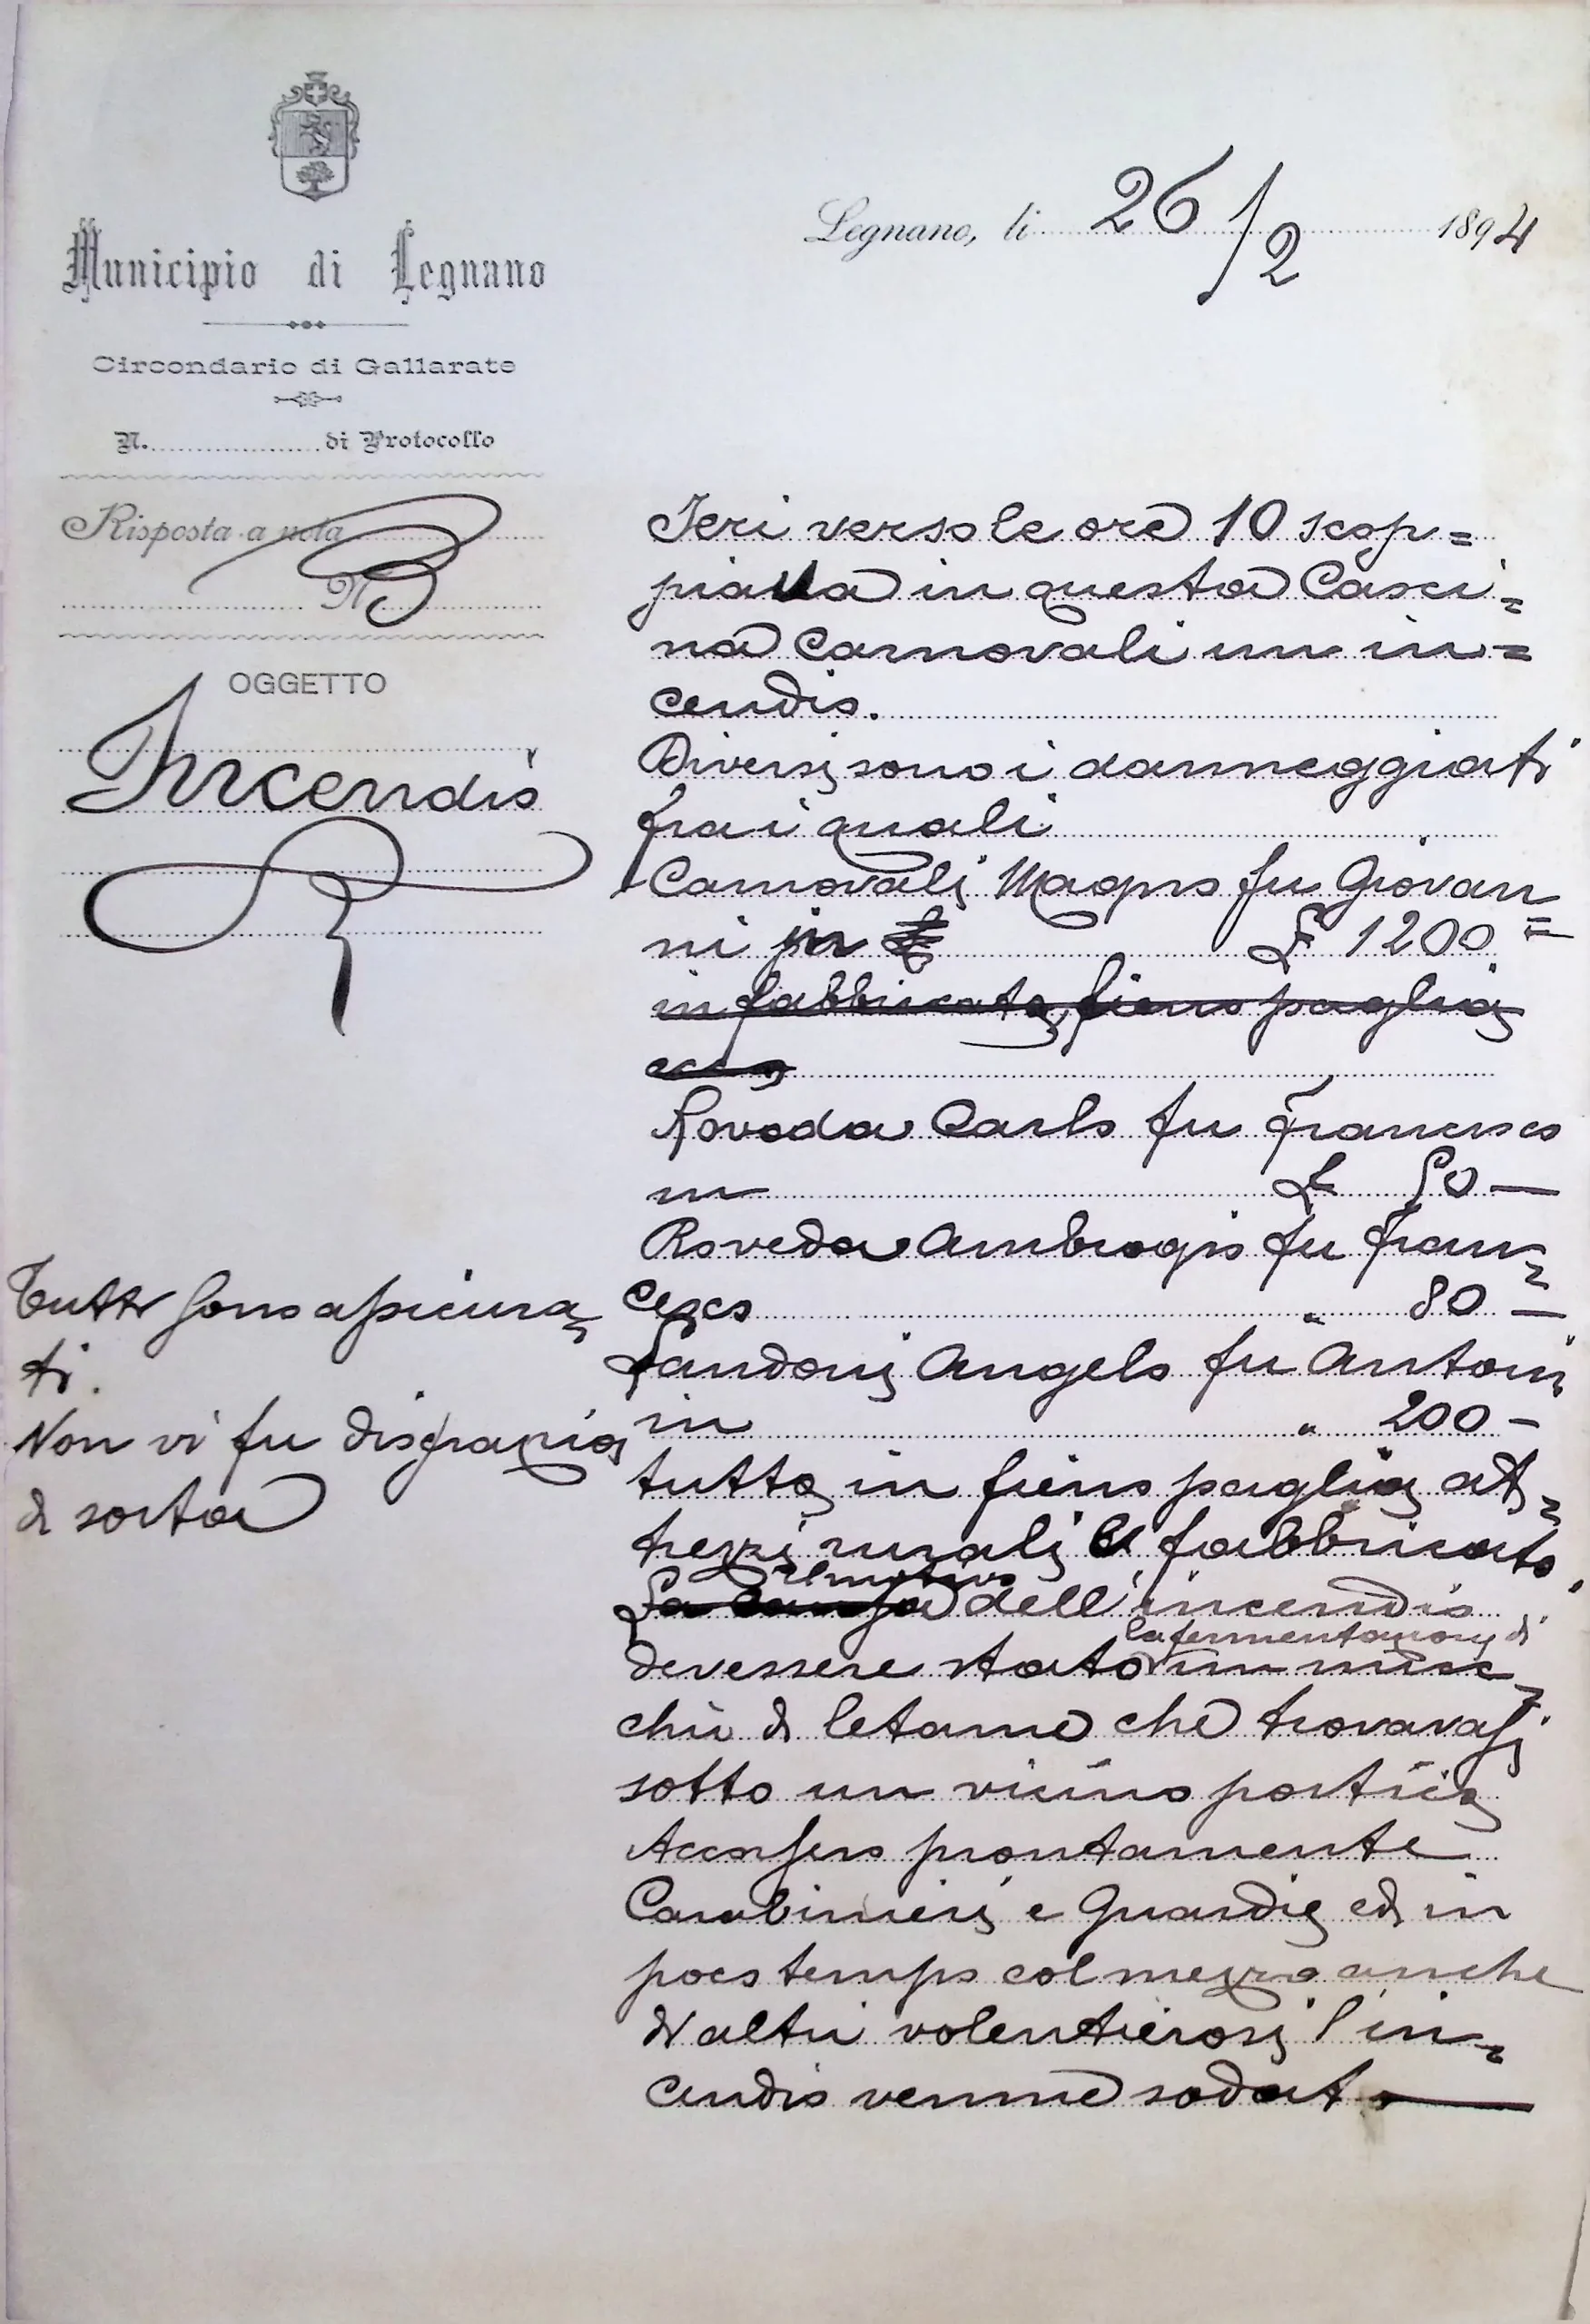 Municipio di Legnano
Circondario di Gallarate
N. di Protocollo
Risposta a nota
N.
OGGETTO
Incendio
Legnano, li 26/2 1894
Ieri verso le ore 10 scop=
piava in questa Casci=
na Carnovali un in=
cendio.
Diversi sono i danneggiati
fra i quali
Carnovali Magno fu Giovan
ni in £ 1200=
in fabbricato, fieno paglia
ecc
Roveda Carlo fu Francesco
in £ 50—
Roveda Ambrogio fu Fran=
cesco " 80—
Landoni Angelo fu Antoni
in " 200—
tutto in fieno paglia at=
trezzi rurali e fabbricato.
La causa il motivo dell'incendio
devessere stato la fermentazione di un muc=
chio di letame che trovavasi
sotto un vicino portico
Accorsero prontamente
Carabinieri e Guardie ed in
poco tempo col mezzo anche
d'altri volenterosi l'in=
cendio venne sodato
Tutti sono assicura=
ti.
Non vi fu disgrazia
di sorta